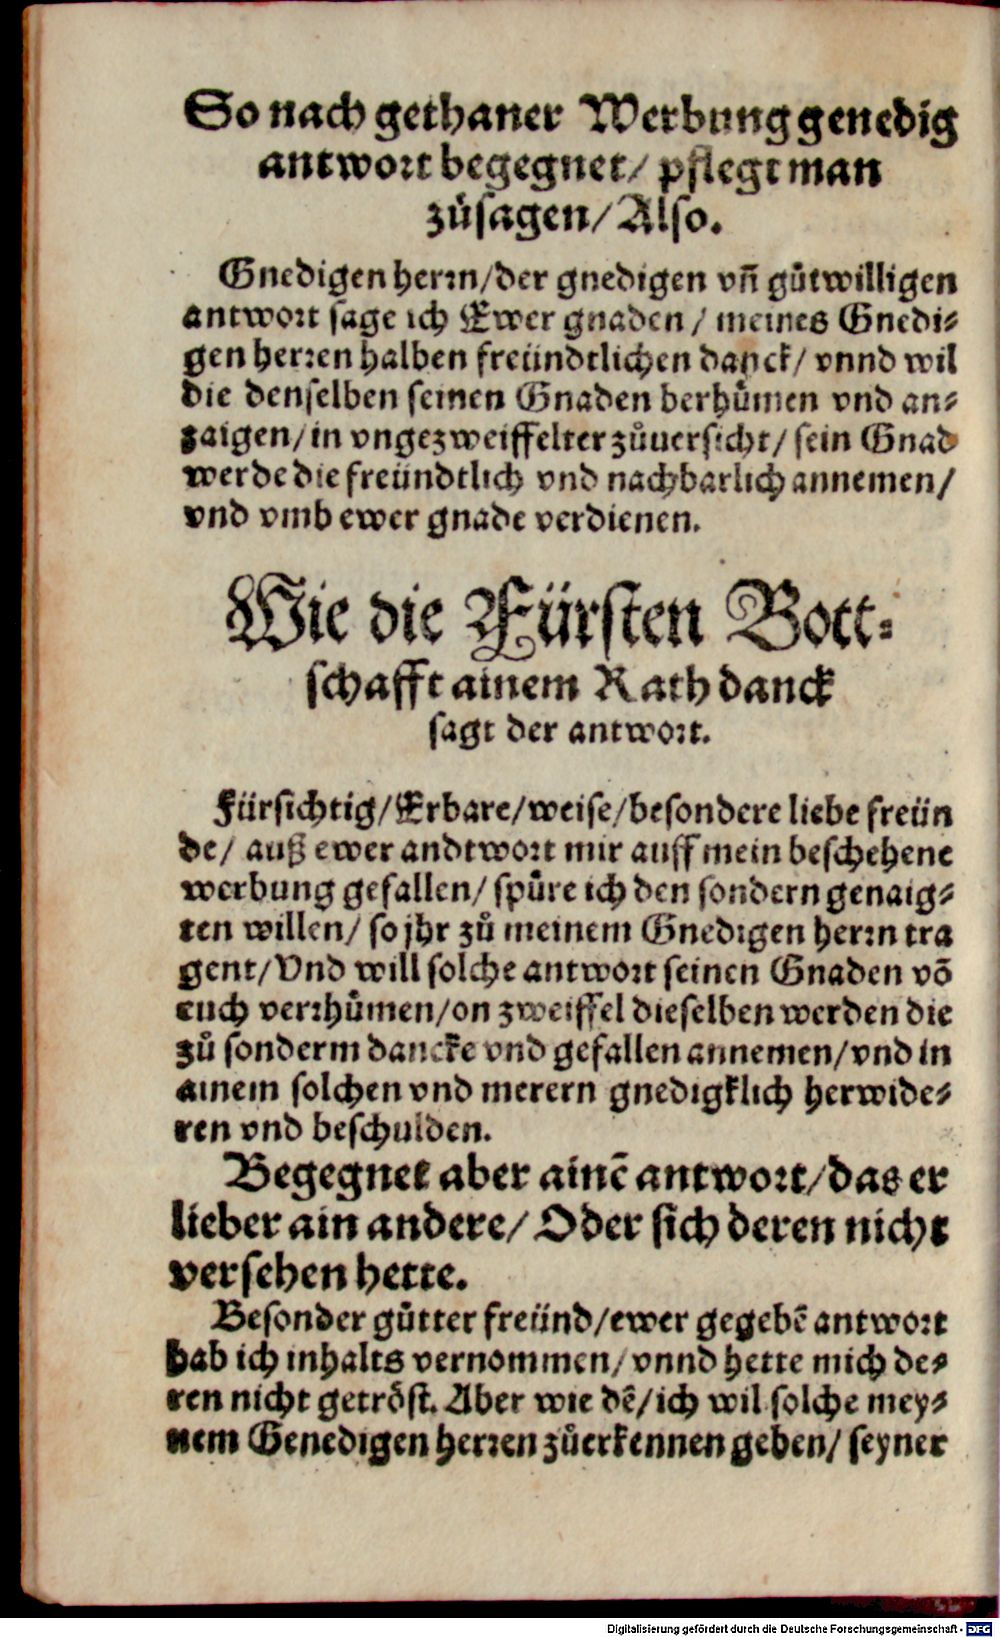 So nach gethaner Werbung genedig
antwort begegnet/ pflegt man
zůsagen/ Also.
Gnedigen herrn/der gnedigen vñ gůtwilligen
antwort sage ich Ewer gnaden / meines Gnedi⸗
gen herren halben freündtlichen danck/ vnnd wil
die denselben seinen Gnaden berhůmen vnd an⸗
zaigen/in vngezweiffelter zůuersicht/ sein Gnad
werde die freündtlich vnd nachbarlich annemen/
vnd vmb ewer gnade verdienen.
Wie die Fürsten Bott⸗
schafft ainem Rath danck
sagt der antwort.
Fürsichtig/Erbare/weise/besondere liebe freün
de/ auß ewer andtwort mir auff mein beschehene
werbung gefallen/ spůre ich den sondern genaig⸗
ten willen/ so jhr zů meinem Gnedigen herrn tra
gent/Vnd will solche antwort seinen Gnaden võ
euch verrhůmen/on zweiffel dieselben werden die
zů sonderm dancke vnd gefallen annemen/vnd in
ainem solchen vnd merern gnedigklich herwide⸗
ren vnd beschulden.
Begegnet aber ainē antwort/das er
lieber ain andere/ Oder sich deren nicht
versehen hette.
Besonder gůtter freünd/ewer gegebē antwort
hab ich inhalts vernommen/ vnnd hette mich de⸗
ren nicht getröst. Aber wie dē/ich wil solche mey⸗
nem Genedigen herren zůerkennen geben/ seyner
Digitalisierung gefördert durch die Deutsche Forschungsgemeinschaft - DFG